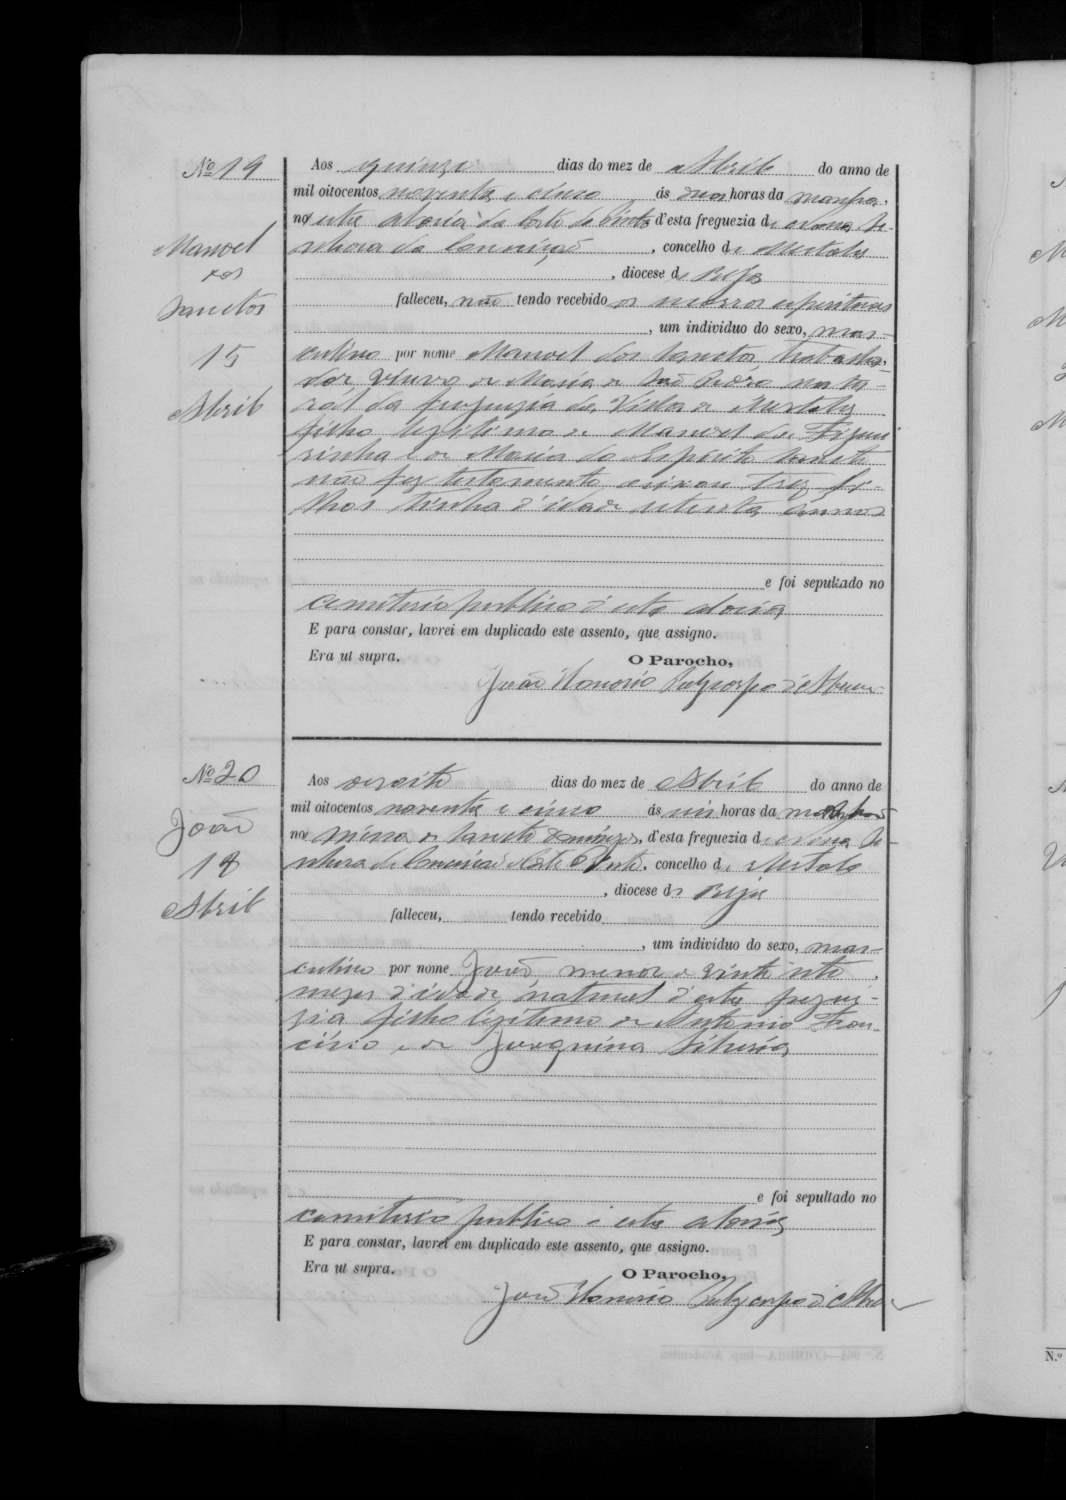 Nº 19
Manoel
dos
Sanctos
15
Abril
Aos quinze dias do mez de Abril do anno de
mil oitocentos noventa e cinco ás duas horas da manhã,
n'esta aldeia da Corte do Pinto d'esta freguezia de Nossa Se-
nhora da Conceição, concelho de Mertola
, diocese de Beja
falleceu, não tendo recebido os nossos espirituaes
, um individuo do sexo, mas-
culino por nome Manoel dos Sanctos, trabalha-
dor, viuvo de Maria de São Pedro natu-
ral da freguezia da Villa de Mertola
filho legitimo de Manoel da Figuei
rinha e de Maria do Espirito Sancto
não fez testamento deixou trez fi-
lhos tinha d'idade setenta annos
e foi sepultado no
cemiterio publico d'esta aldeia
E para constar, lavrei em duplicado este assento, que assigno.
Era ut supra. O Parocho,
João Honorio Policarpo d'Abreu
Nº 20
João
18
Abril
Aos dezoito dias do mez de Abril do anno de
mil oitocentos noventa e cinco ás seis horas da manhã
na Mina de Sancto Domingos, d'esta freguezia de Nossa Se-
nhora da Conceição Corte do Pinto, concelho de Mertola
, diocese de Beja
falleceu, tendo recebido
, um individuo do sexo, mas-
culino por nome João menor de vinte oito
mezes d'idade, natural d'esta fregue-
zia filho legitimo de Antonio Fran-
cisco e de Joaquina
e foi sepultado no
cemiterio publico d'esta aldeia
E para constar, lavrei em duplicado este assento, que assigno.
Era ut supra. O Parocho,
João Honorio Policarpo d'Abreu
N.º